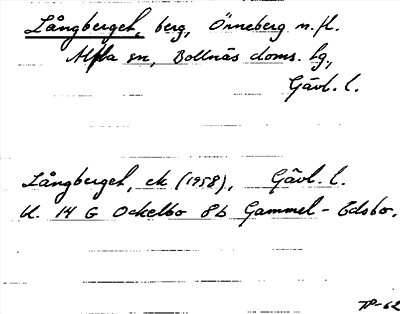 Långberget, berg, Örneberg m.fl.
Alfta sn, Bollnäs doms. hg,
Gävl. l.
Långberget, ek (1958), Gävl. l.
bl. 14 G Ockelbo 8b Gammel-Edsbo.
TP-62